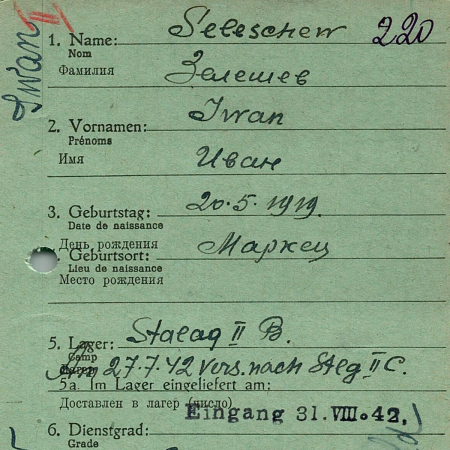 Iwan II
1. Name: Seleschew 220
Nom
Фамилия Зелешев
2. Vornamen: Iwan
Prénoms
Имя Иван
3. Geburtstag: 20.5.1919.
Date de naissance
День рождения
Geburtsort: Маркец
Lieu de naissance
Место рождения
5. Lager: Stalag II B.
Camp
Лагерь
27.7.42 Vers. nach Stlg II C.
5a. Im Lager eingeliefert am:
Доставлен в лагерь (число)
Eingang 31.VIII.42.
6. Dienstgrad:
Grade